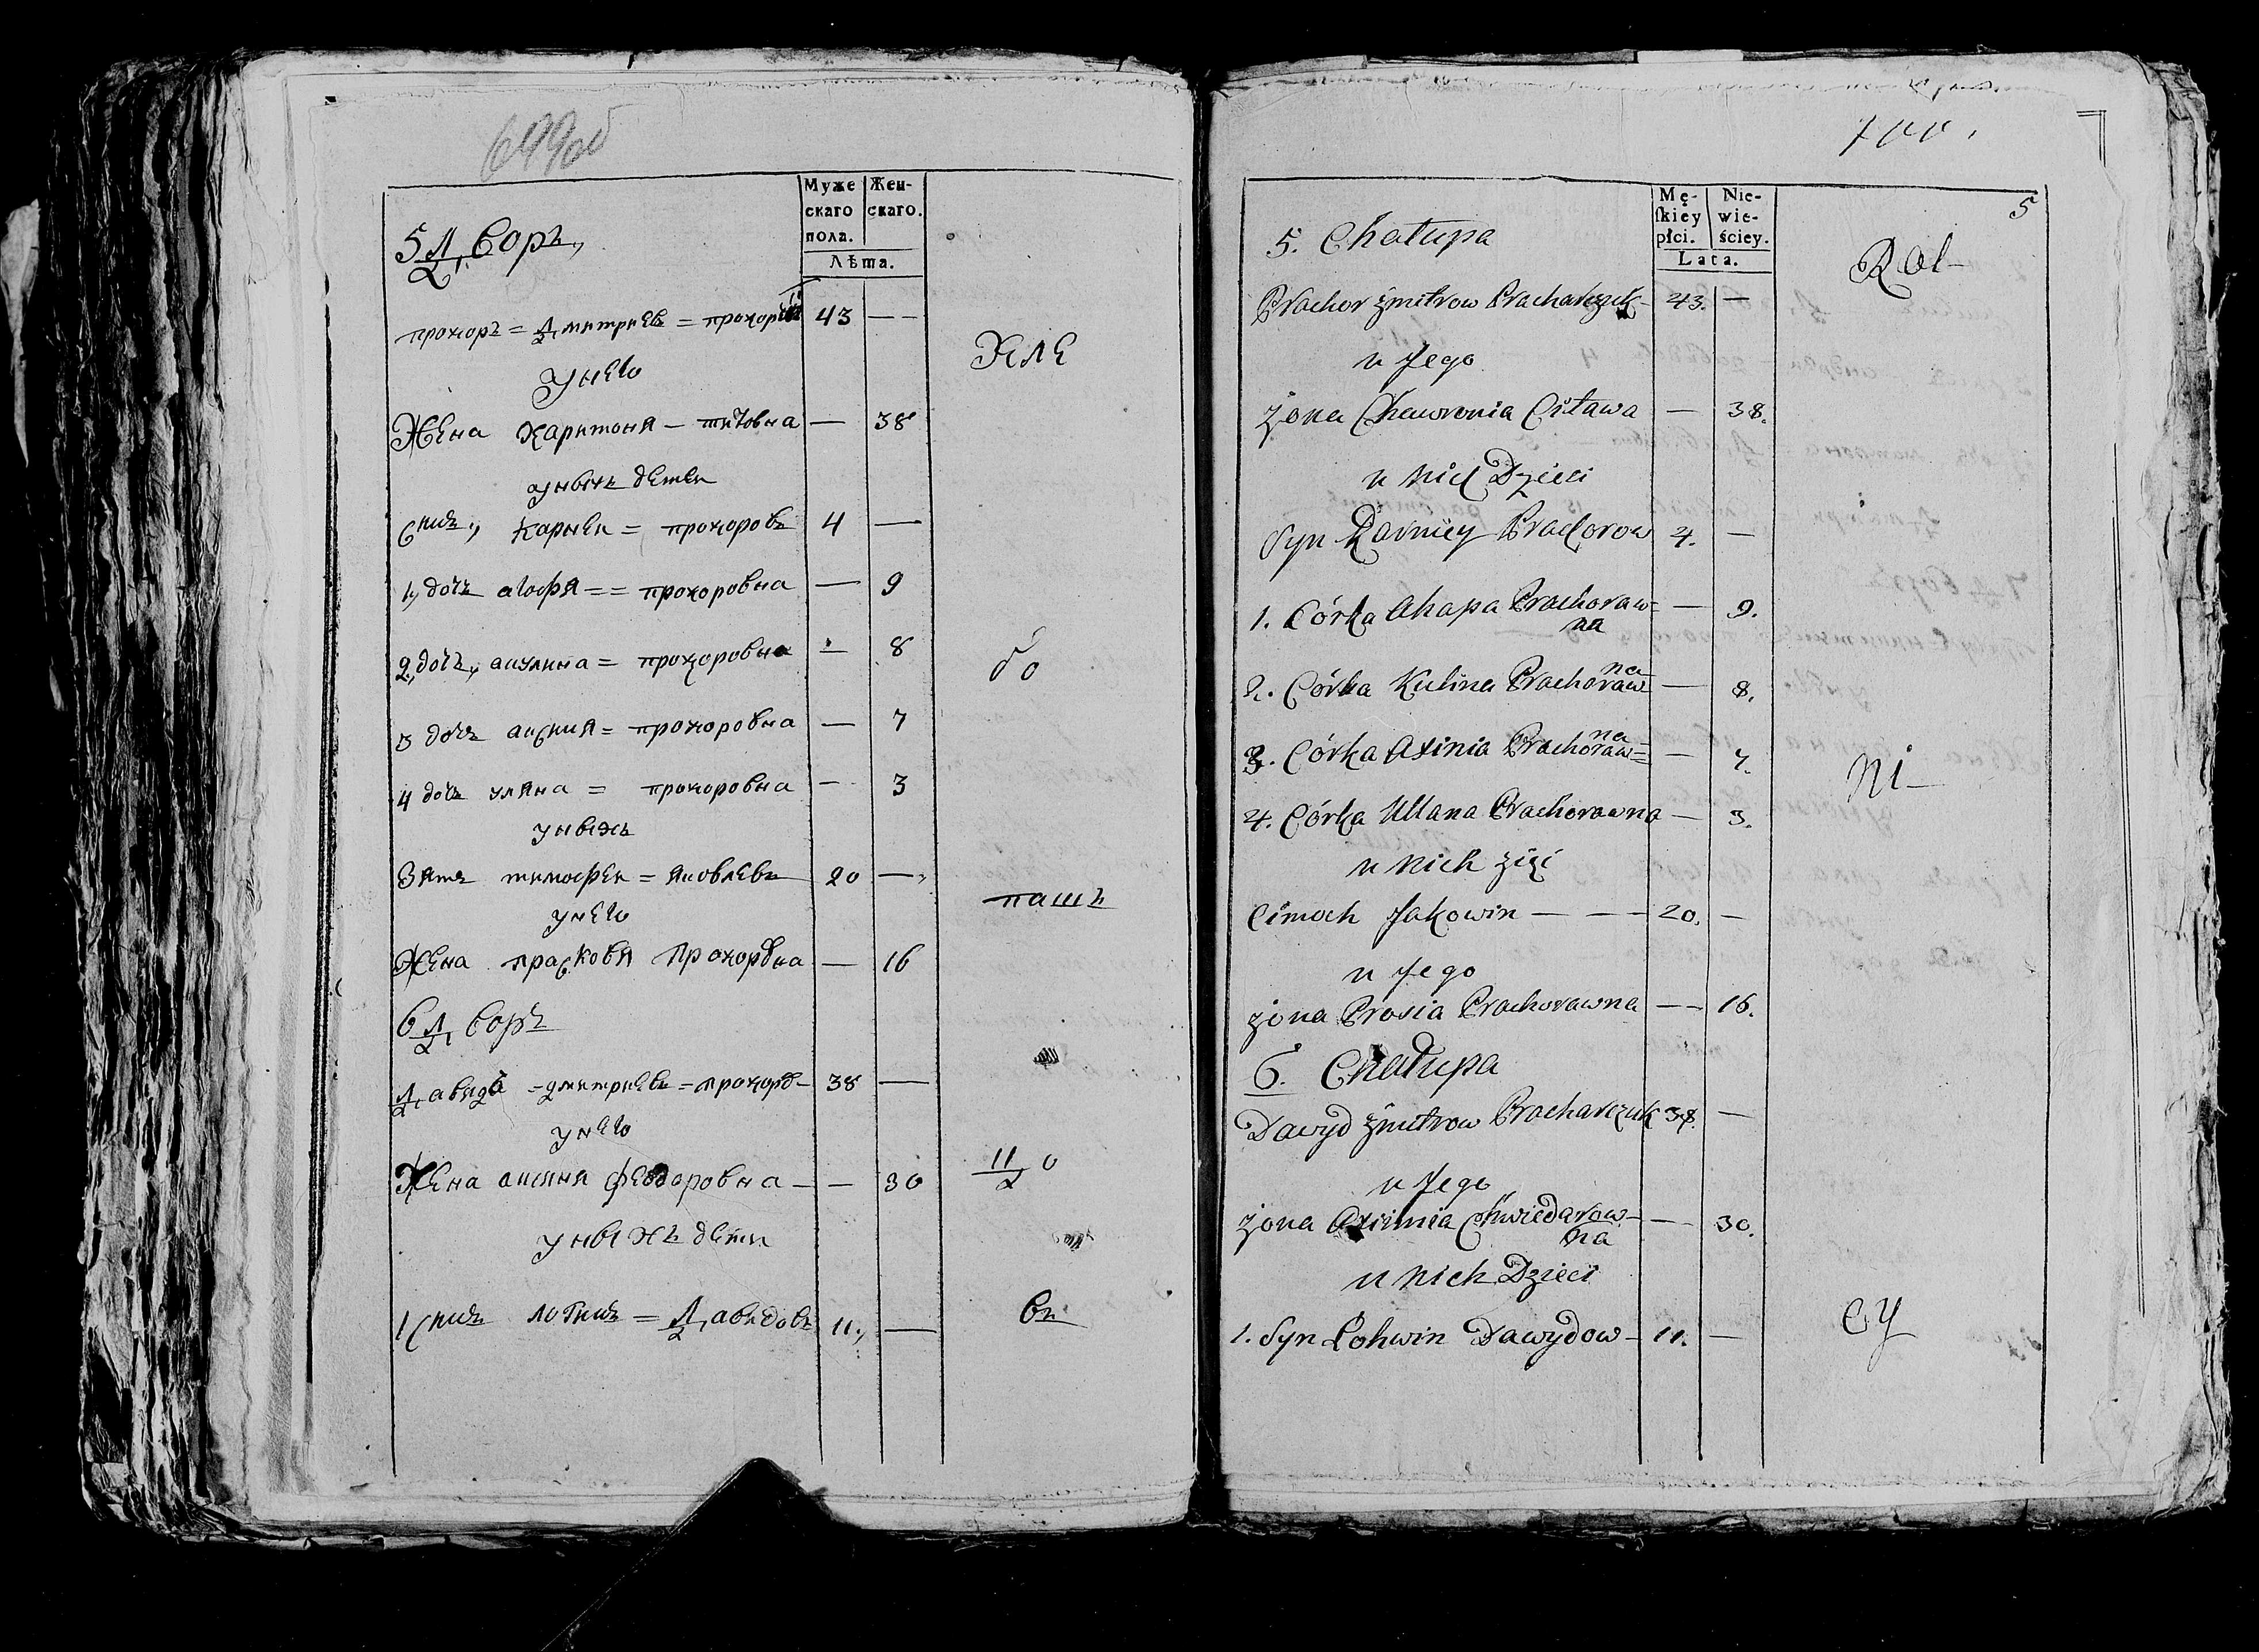 699об
Муже
скаго
пола.
Жен-
скаго.
Лѣта.
5 Дворъ
прохоръ = Дмитриевъ = прохорчук 43 — —
унего
Жена харитония — титовна — 38
унихъ детеи
Сынъ карнеи = прохоровъ 4 —
1, дочь агафя = = прохоровна — 9
2, дочь, акулина = прохоровна — 8
3 дочь аксиня = прохоровна — 7
4 дочь уляна = прохоровна — 3
унихъ
Зять тимофеи = яковлевъ 20 —
унего
Жена прасковя Прохорвна — 16
6 Дворъ
Давидъ = дмитриевъ = прохорв — 38 —
унего
Жена аксиня феодоровна — — 30
унихъ дети
1 Сынъ логинъ = Давидовъ 11, —
Хле
бо
пашъ
цо
въ
700.
5
Mę-
skiey
płci.
Nie-
wie-
ściey.
Lata.
5. Chałupa
Prachor źmitrow Pracharczuk 43. —
u Jego
żona Chawronia Citawa — 38.
u nich Dzieci
Syn Karniey Prachorow 4. —
1. Córka Ahapa Prachoraw=
na — 9.
2. Córka Kulina Prachoraw
na — 8.
3. Córka Axinia Prachoraw=
na — 7.
4. Córka Ullana Prachorawna — 3.
u nich zięć
Cimoch Jakowin — — — 20. —
u Jego
żona Prosia Prachorawna — — 16.
6. Chałupa
Dawyd źmitrow Pracharczuk 38. —
u Jego
żona Axinnia Chwiedarow-
na — 30.
u nich Dzieci
1. Syn Łohwin Dawydow — 11. —
Rol-
ni-
cy